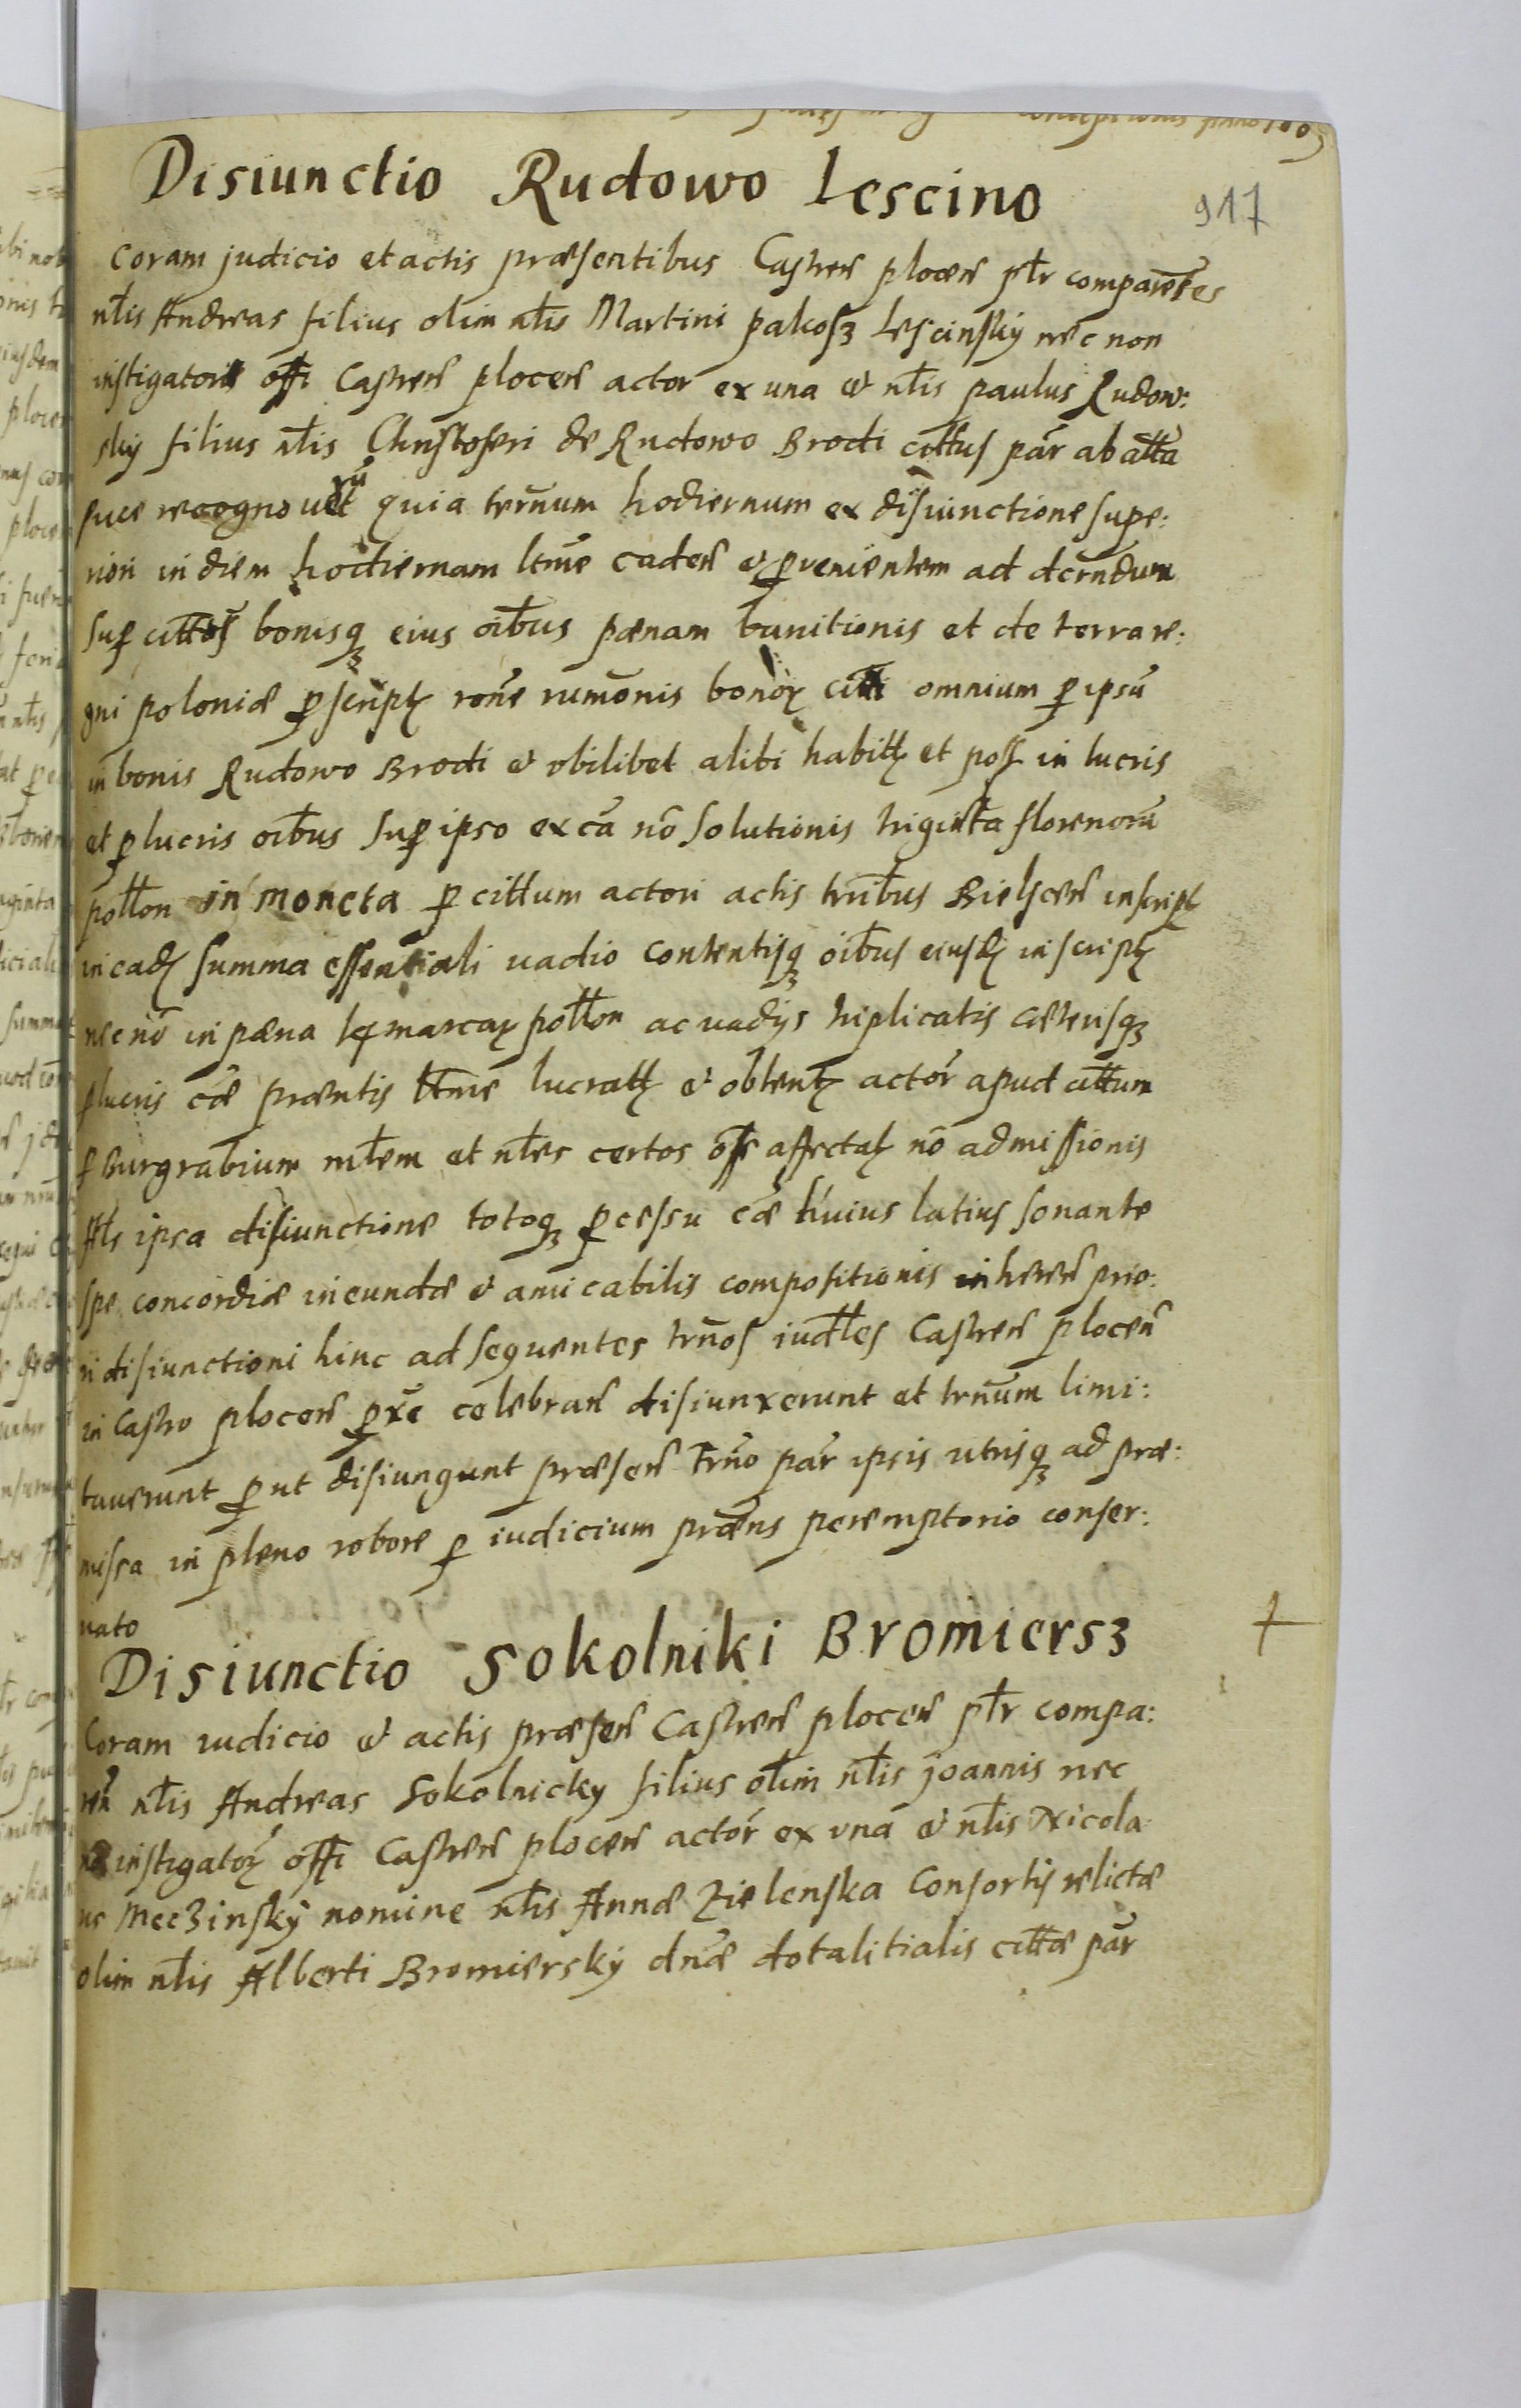 Disiunctio Rudowo Lescino
917
Coram judicio et actis præsentibus Castren̄ plocen̄ pl̄r comparen̄tes
nl̄is Andreas filius olim nl̄is Martini pakosz Lescinsky nec non
instigatoris offi Castren̄ plocen̄ actor ex una et nl̄is paulus Rudow:
sky filius nl̄is Christoferi de Rudowo Brodi citt̄us par̄ ab att̄a
suce recognouēt quia tern̄um hodiernum ex disiunctione supe:
riori in diem hodiernam lt̄me caden̄ et ꝓvenientem ad dcr̄ndum
sup̱ citt̄os bonisqꝫ eius oib̄us pænam banitionis et de terra re:
gni poloniæ ꝓscript rōne rumōnis bonoꝝ citt̄i omnium ꝑ ipsū
in bonis Rudowo Brodi et vbilibet alibi habitt et poss in lucris
et ꝑlucris oib̄us sup̱ ipso ex cā nō solutionis triginta florenorū
poll̄on in moneta ꝑ cittum actori actis trr̄ibus Bielscen̄ inscript
in ead summa essentiali vadio contentisqꝫ oib̄us eiusd inscript
nec nō in pæna marcaꝝ poll̄on ac vadys triplicatis cæterisqꝫ
ꝑlucris cæ præntis lt̄me lucratt et obtent actor̄ apud citt̄um
ꝑ Burgrabium ml̄em et nl̄es certos offs affectat nō admissionis
Al̄s ipsa disiunctione totoqꝫ ꝓcessu cæ huius latius sonante
spe concordiæ ineundæ et amicabilis compositionis inheren̄ prio:
ri disiunctioni hinc ad sequentes trn̄os iudl̄es Castren̄ plocen̄
in Castro plocen̄ ꝓxē celebran̄ disiunxerunt et trn̄um limi:
tauerunt ꝓut disiungunt præsen̄ trn̄o par̄ ipsis utrisqꝫ ad præ:
missa in pleno robore ꝑ iudicium præns peremptorio conser:
uato
Disiunctio Sokolniki Bromiersz
Coram iudicio et actis præsen̄ Castren̄ plocen̄ pl̄r compa:
ren̄ nl̄is Andreas Sokolnicky filius olim nl̄is joannis nec
nō instigatoꝝ offi Castren̄ plocen̄ actor̄ ex vna et nl̄is Nicola
us Meczinsky nomine nl̄is Annæ Zielenska Consortis relictæ
olim nl̄is Alberti Bromiersky dnæ dotalitialis citt̄æ par̄